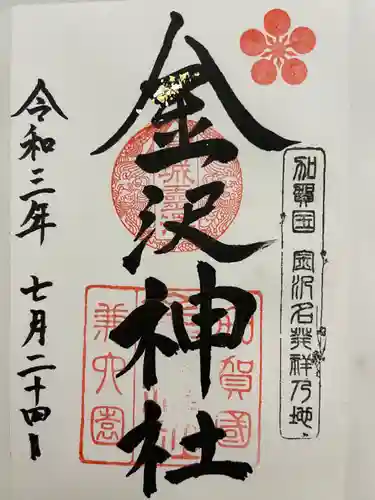 加賀国 金沢名発祥乃地
金沢神社
兼六園
加賀國
令和三年 七月二十四日